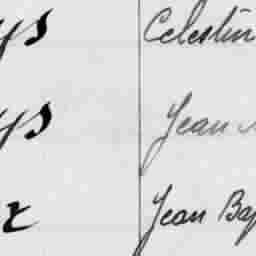 ys Celestin
ys Jean
x Jean Bap